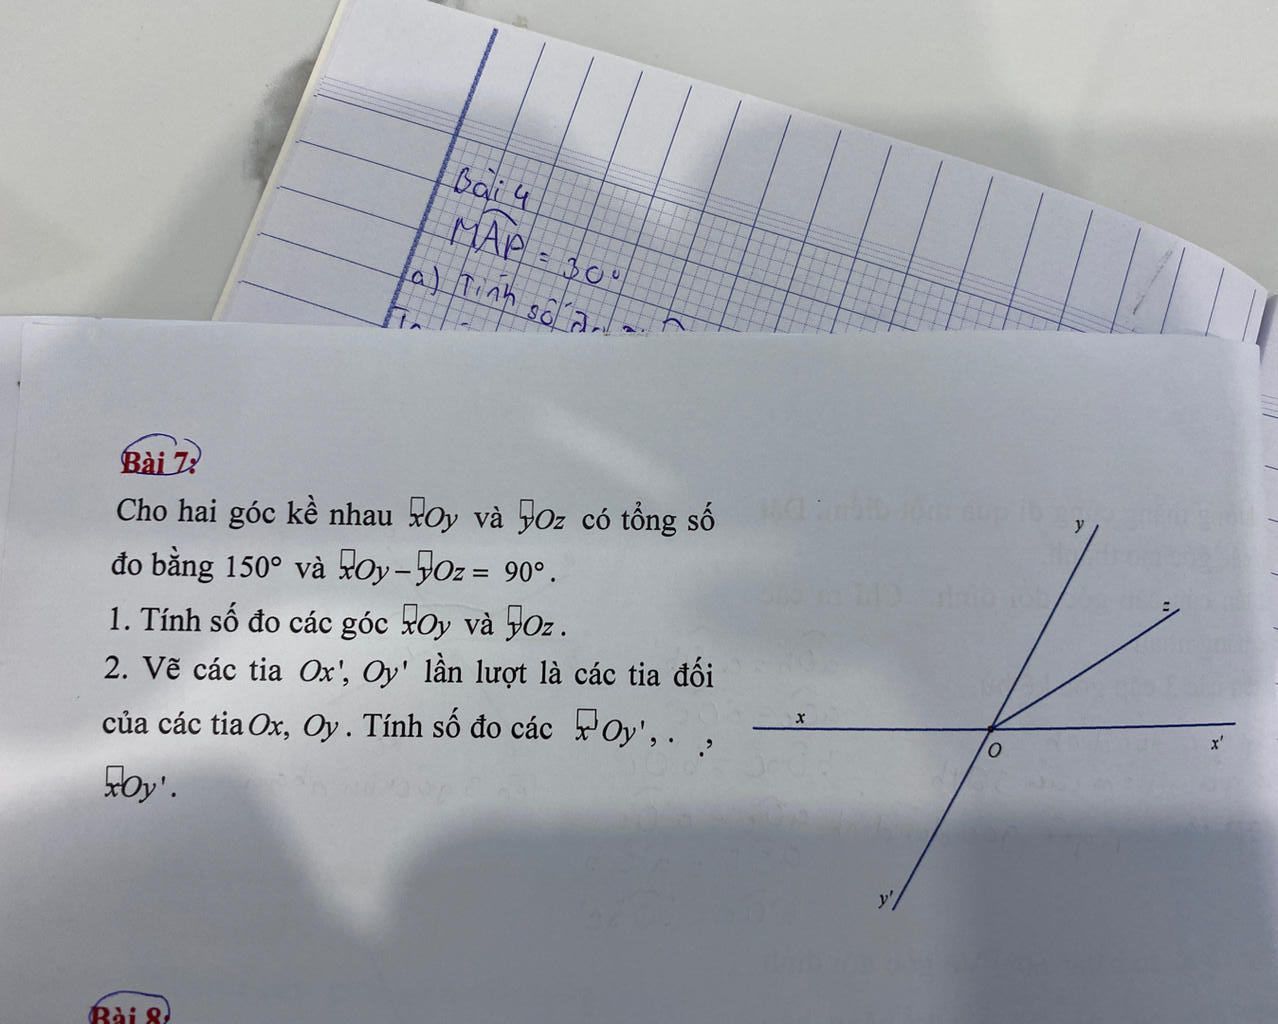 Bài 4
MAP = 30°
a) Tính số đo
Bài 7:
Cho hai góc kề nhau xOy và yOz có tổng số
đo bằng 150° và xOy – yOz = 90°.
1. Tính số đo các góc xOy và yOz.
2. Vẽ các tia Ox', Oy' lần lượt là các tia đối
của các tia Ox, Oy. Tính số đo các x'Oy', . ,
xOy'.
y
z
x
O
x'
y'
Bài 8: